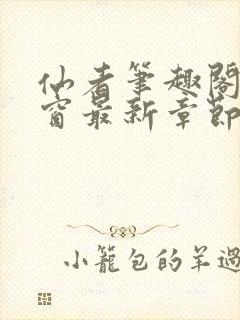 仙者筆趣閣
窗最新章節
小籠包的羊過